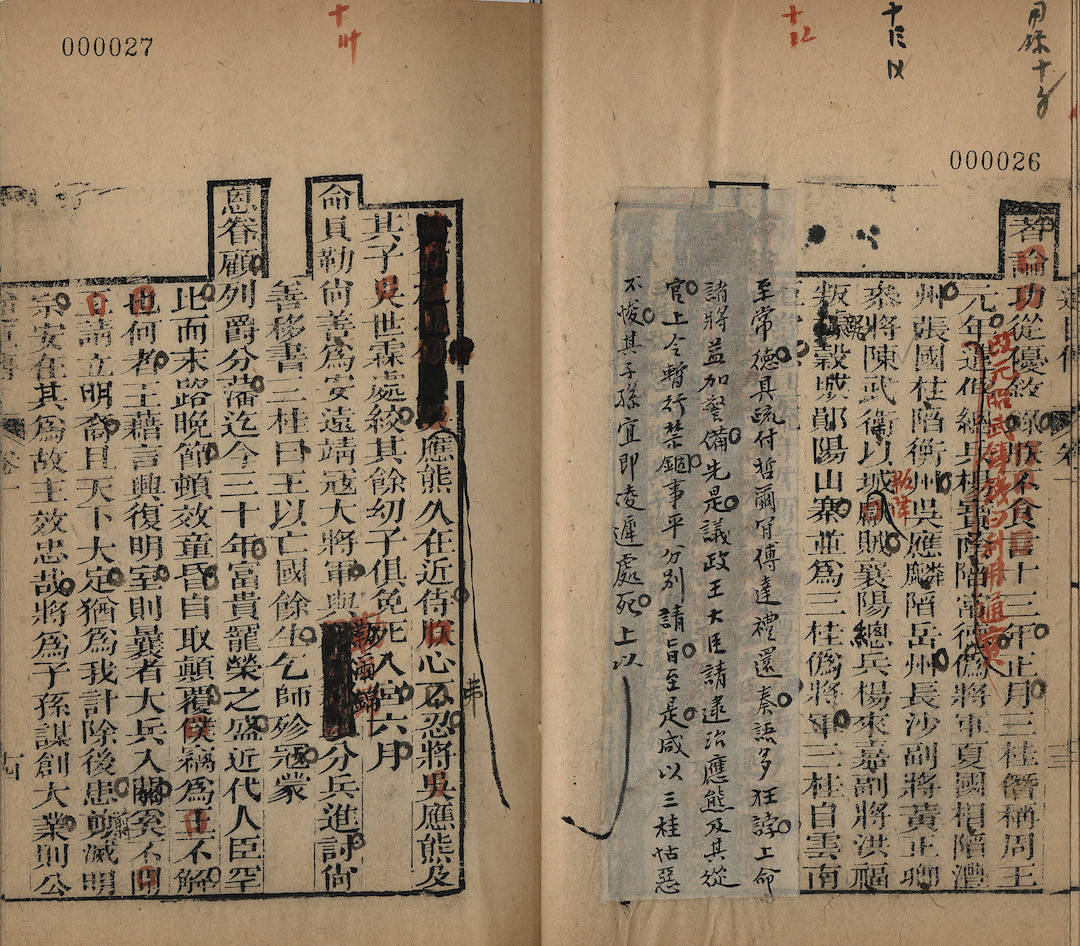 000026
著論功從優敘錄朕不食言十三年正月三桂僭稱周王
改元昭武鑄錢曰利用通寶
元年遣偽總兵楊寶陷常德偽將軍夏國相陷澧
州張國柱陷衡州吳應麟陷岳州長沙副將黃正卿
叛降
叅將陳武衡以城獻賊襄陽總兵楊來嘉副將洪福
叛踞穀城鄖陽山寨並為三桂偽將軍三桂自雲南
至常德具疏付哲爾肯傅達禮還奏語多狂誖上命
諸將益加警備先是議政王大臣請逮治應熊及其從
官上令暫行禁錮事平分別請旨至是咸以三桂怙惡
不悛其子孫宜即凌遲處死上以
000027
應熊久在近侍朕心不忍將吳應熊及
其子吳世霖處絞其餘幼子俱免死入宮六月
命貝勒尚善為安遠靖寇大將軍與勒爾錦分兵進討尚
善移書三桂曰王以亡國餘生乞師殄寇蒙
恩眷顧列爵分藩迄今三十年富貴寵榮之盛近代人臣罕
比而末路晚節頓效童昏自取顛覆僕竊為王不解
也何者王藉言興復明室則曩者大兵入關奚不聞
王請立明裔且天下大定猶為我計除後患剪滅明
宗安在其為故主效忠哉將為子孫謀創大業則公